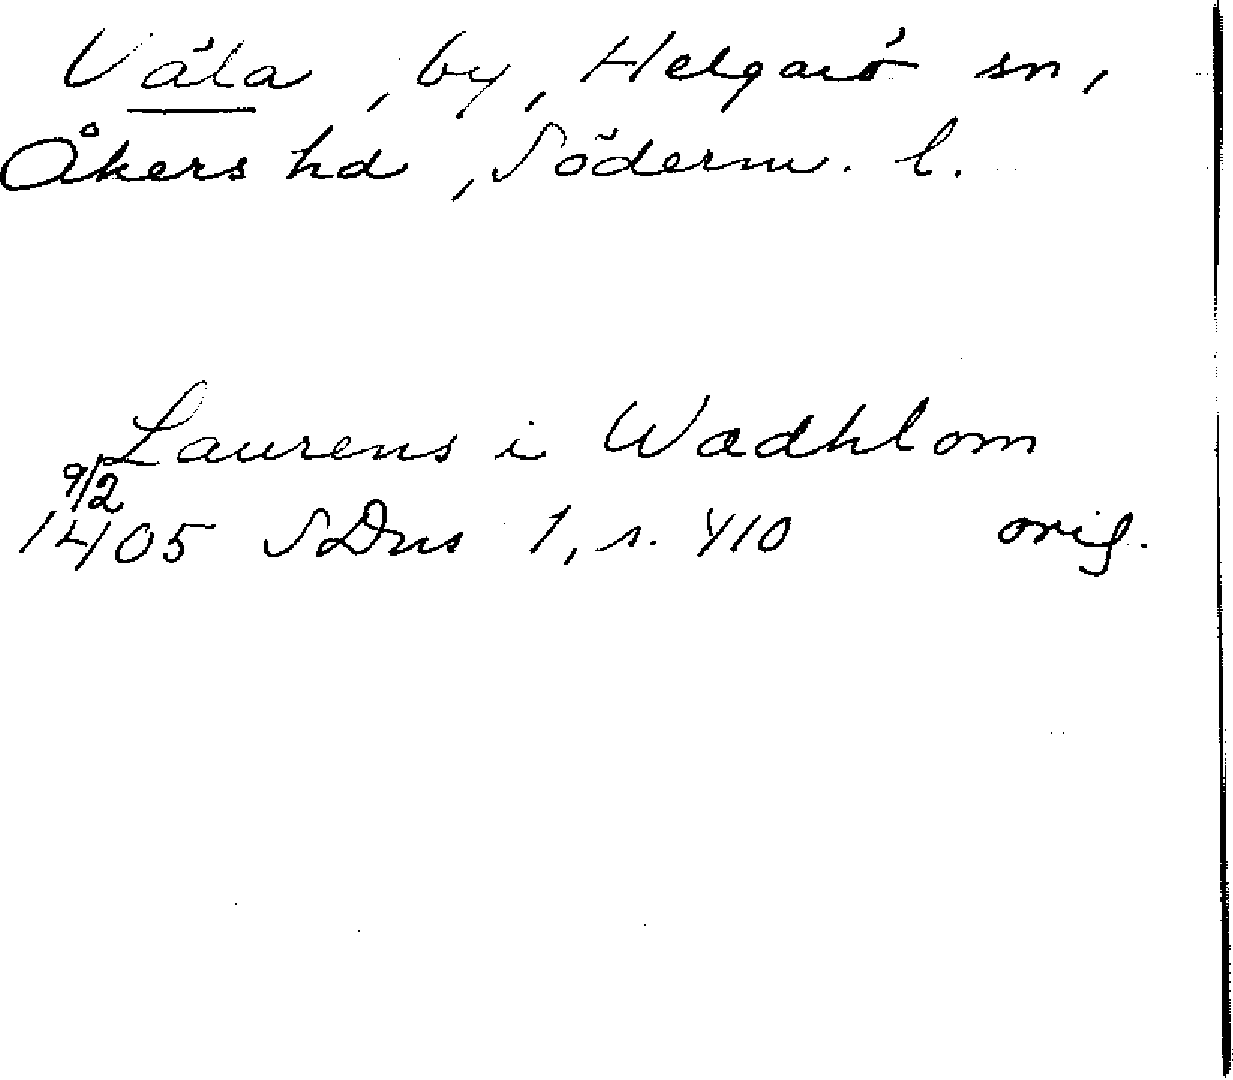 Väla, by, Helgarö sn,
Åkers hd, Söderm. l.
Laurens i Wadhlom
9/2
1405 SDns 1, s. 410 orig.